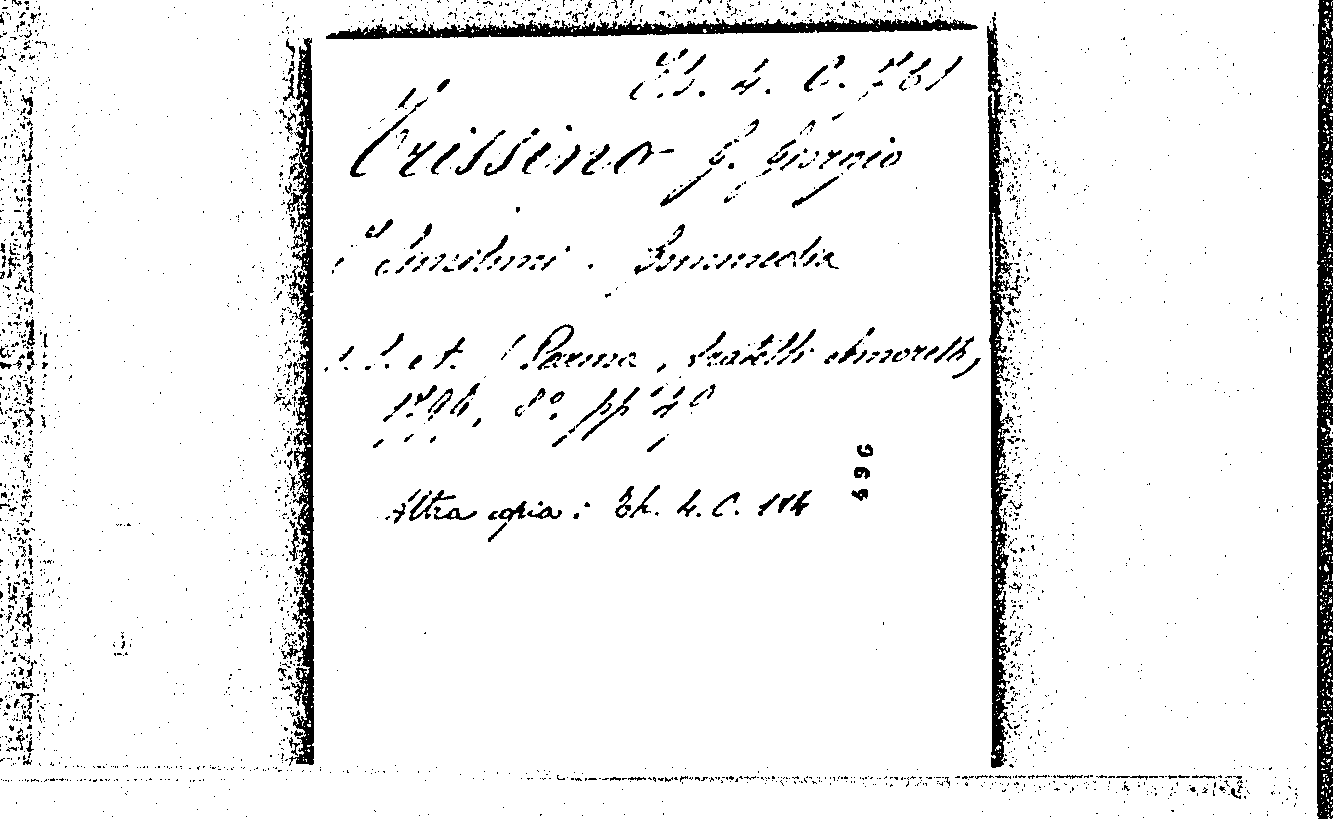 Th. 4. C. 761
Trissino G. Giorgio
I Simillimi. Commedia
s. l. et t. (Parma, Fratelli Amoretti,
1796, 8° pp 40
596
Altra copia: Th. 4. C. 184